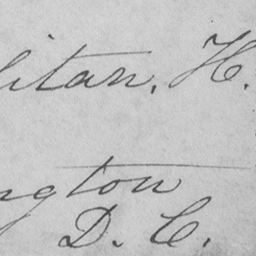 litan, H.
ngton
D. C.